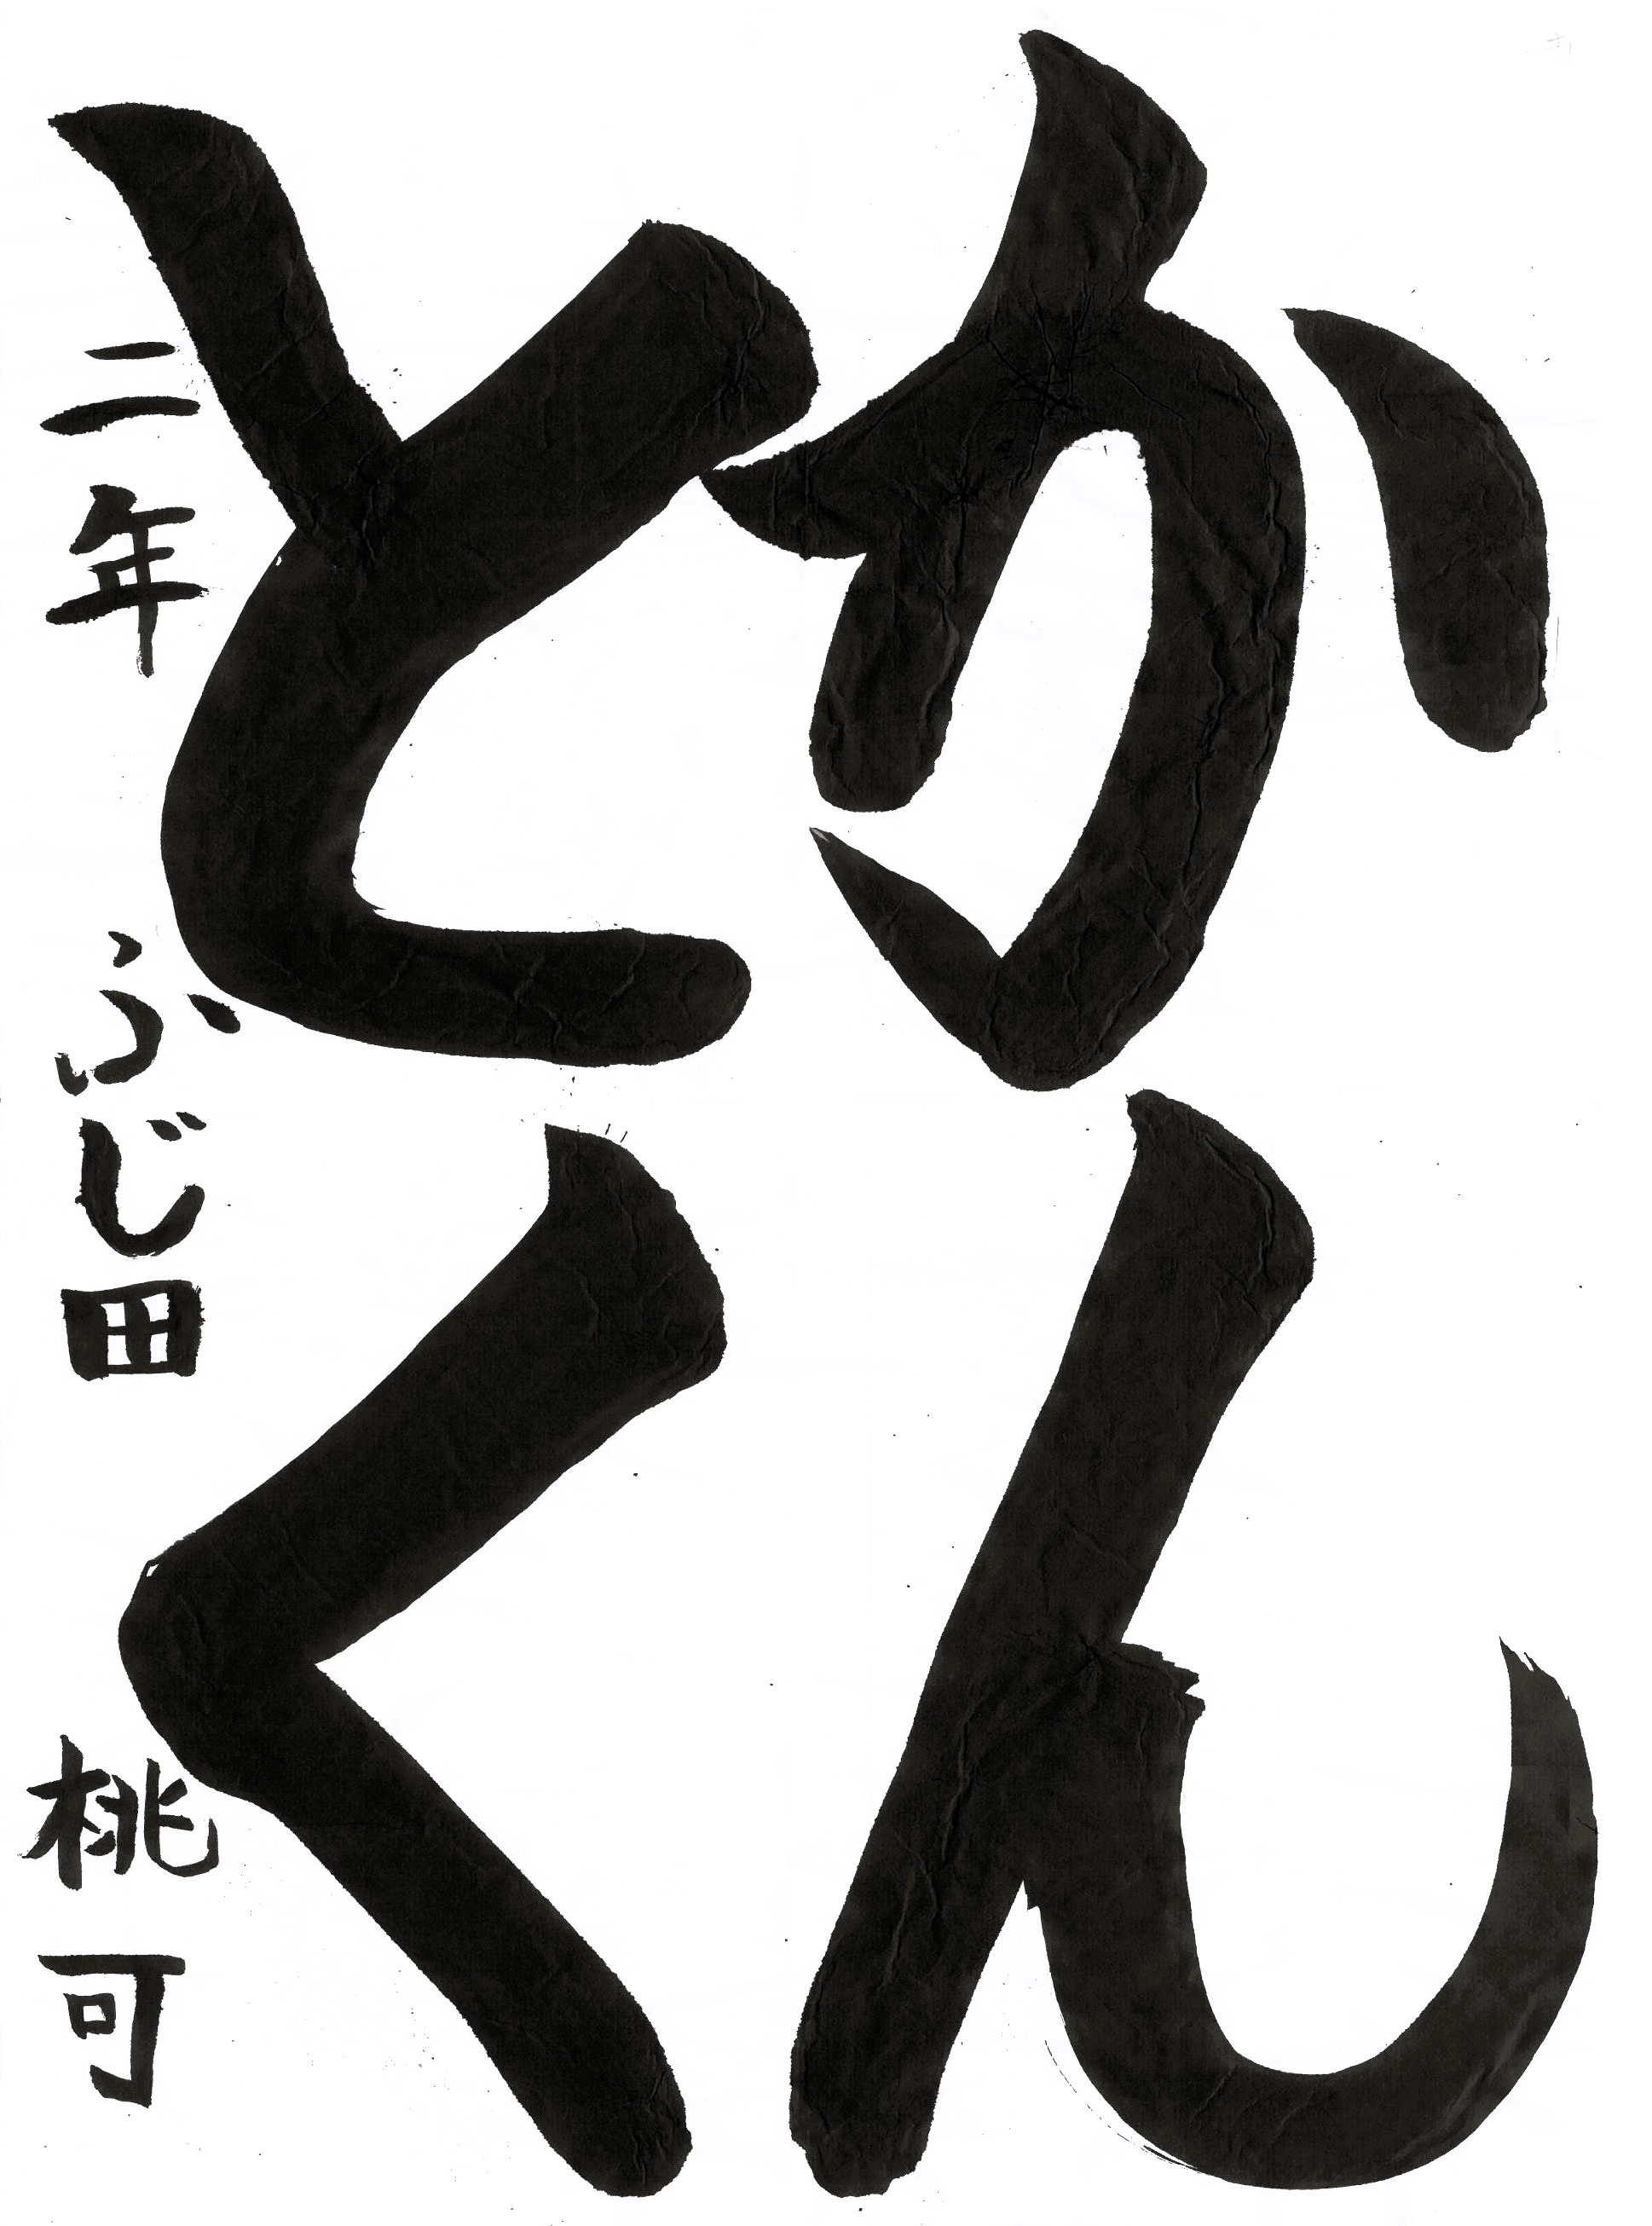 かん
とく
二年 ふじ田 桃可